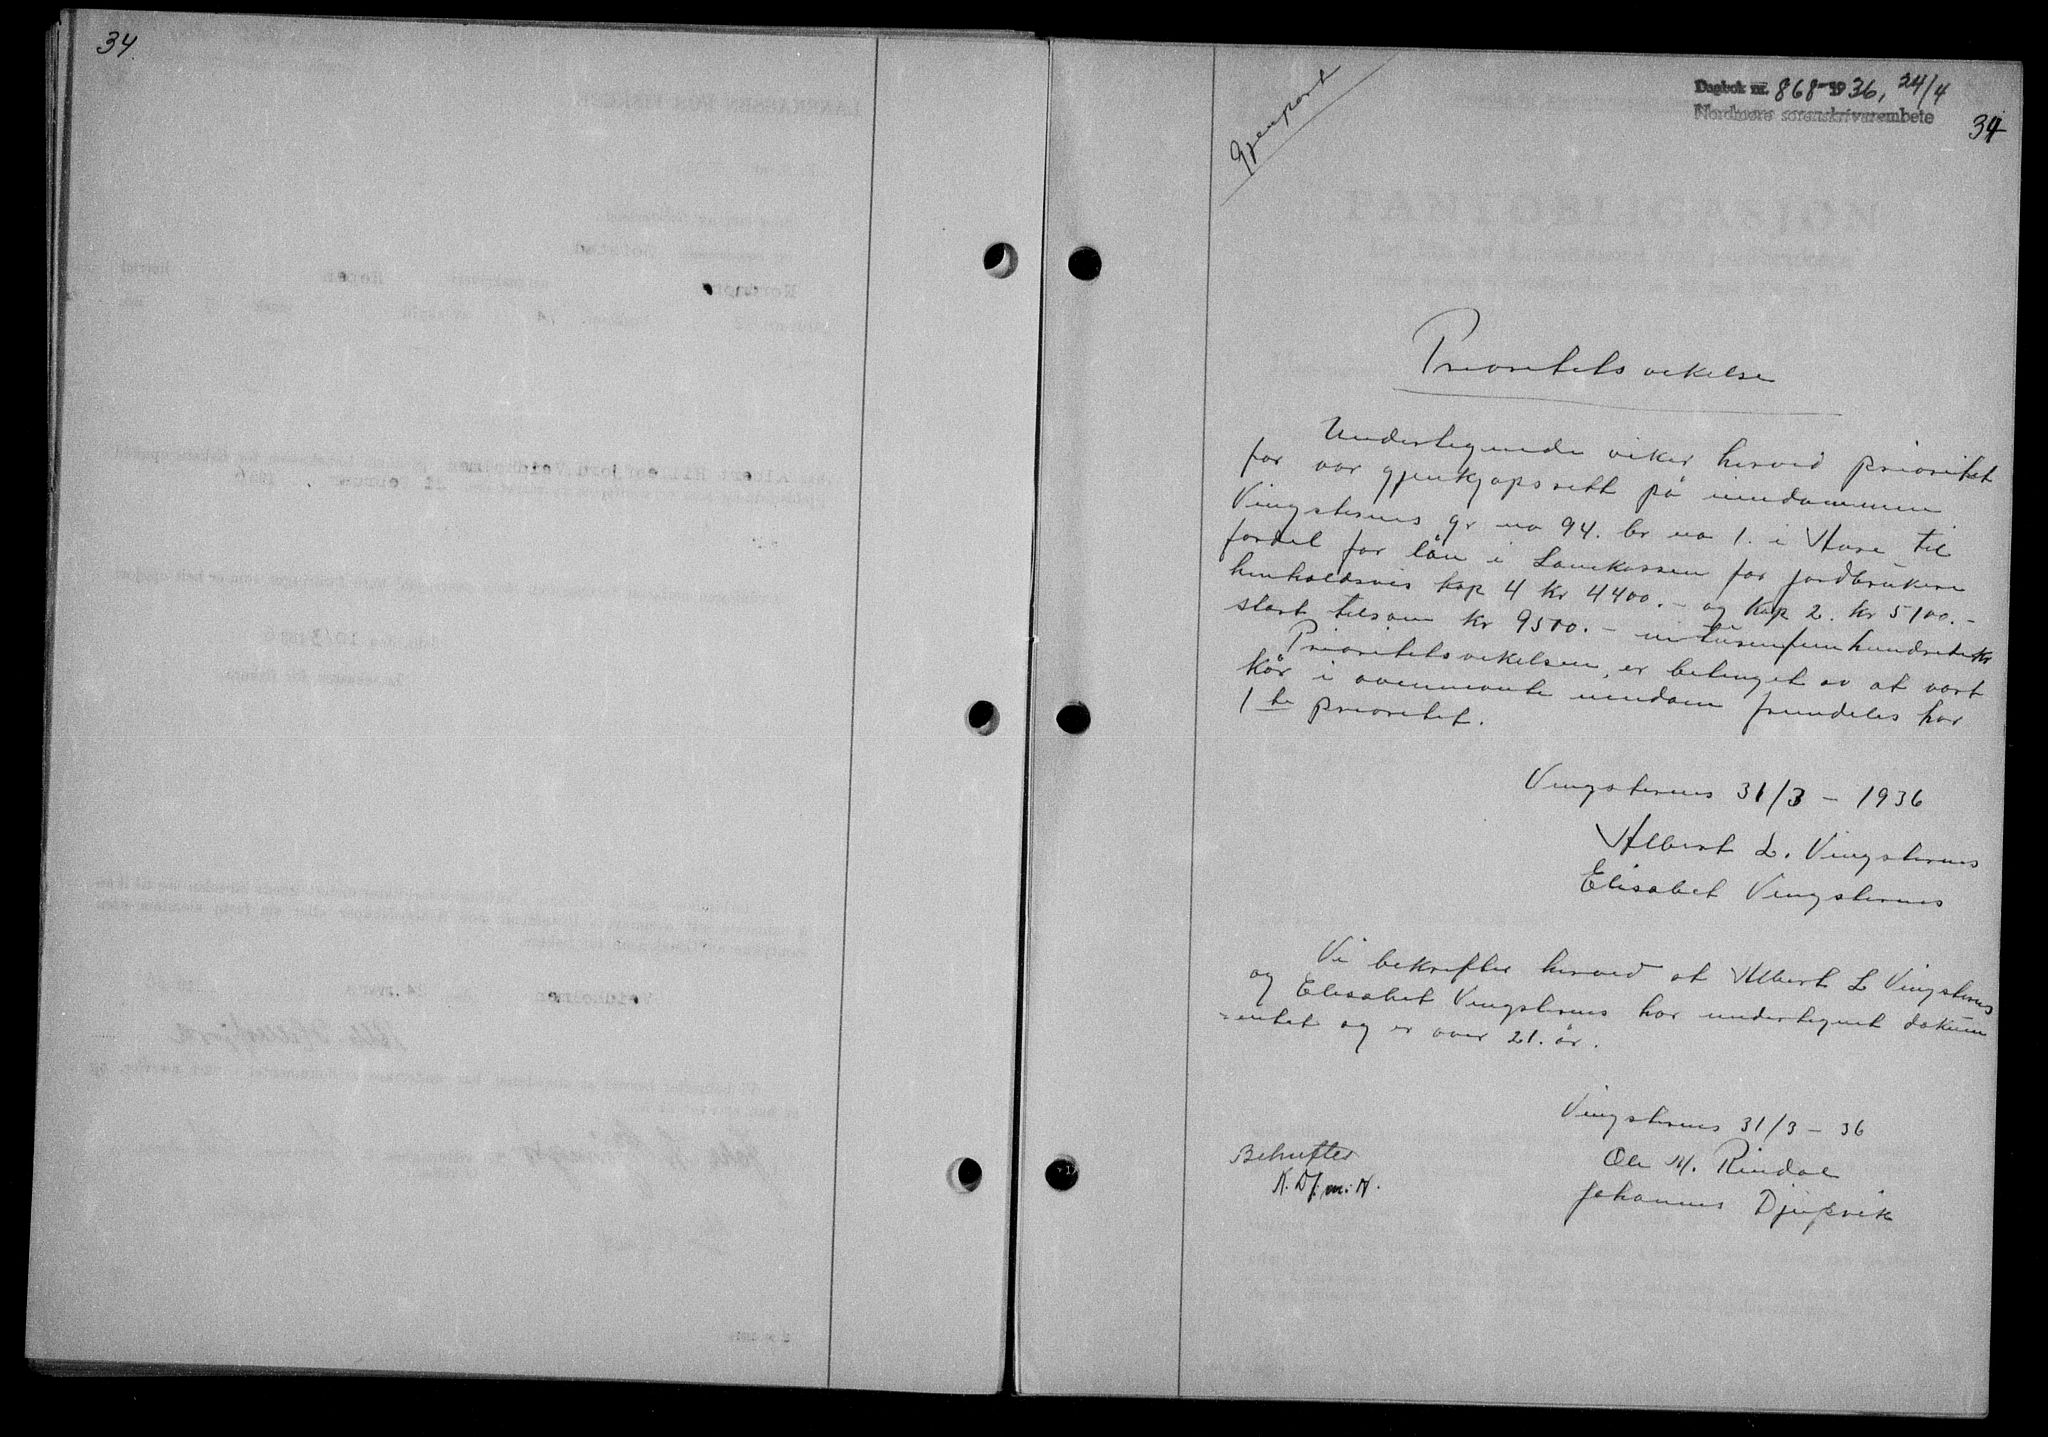 34.
Gjenpart
Dagbok nr. 868-1936, 24/4
Nordmøre sorenskrivarembete
34
Prioritetsvikelse
Undertegnede viker herved prioritet
for vor gjenkjøpsrett på eiendommen
Vingsternes gr no 94. br no 1. i Aure til
fordel for lån i Lånekassen for jordbrukere
henholdsvis kap 4 kr 4400.- og kap 2. kr 5100.-
stort tilsam kr 9500.- nitusenfemhundredekr
Prioritetsvikelsen er betinget av at vort
kår i ovennevnte eiendom fremdeles har
1ste prioritet.
Vingsternes 31/3 - 1936
Albert L. Vingsternes
Elisabet Vingsternes
Vi bekrefter herved at Albert L Vingsternes
og Elisabet Vingsternes har undertegnet dokum
-entet og er over 21. år.
Vingsternes 31/3 - 36
Ole M. Rindal
Johannes Djupvik
Bekrefter